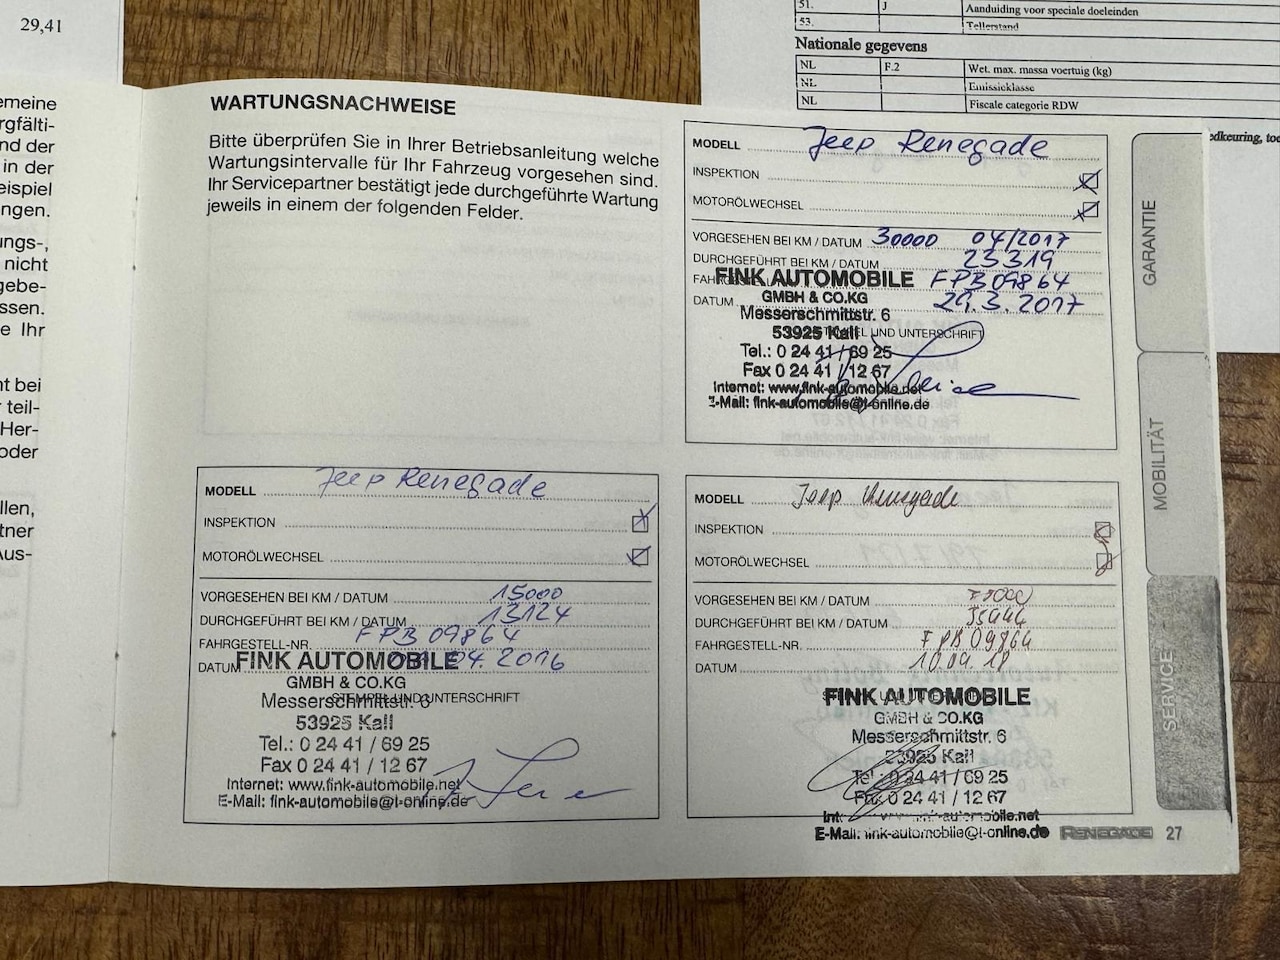 29,41
51. J Aanduiding voor speciale doeleinden
53. Tellerstand
Nationale gegevens
NL F.2 Wet. max. massa voertuig (kg)
NL Emissieklasse
NL Fiscale categorie RDW
edkeuring, toe
emeine
rgfälti-
nd der
in der
eispiel
ngen.
ungs-,
nicht
gebe-
ssen.
e Ihr
nt bei
teil-
Her-
oder
llen,
tner
Aus-
WARTUNGSNACHWEISE
Bitte überprüfen Sie in Ihrer Betriebsanleitung welche
Wartungsintervalle für Ihr Fahrzeug vorgesehen sind.
Ihr Servicepartner bestätigt jede durchgeführte Wartung
jeweils in einem der folgenden Felder.
MODELL Jeep Renegade
INSPEKTION
MOTORÖLWECHSEL
VORGESEHEN BEI KM / DATUM 30000 04/2017
DURCHGEFÜHRT BEI KM / DATUM 23319
FPB09864
DATUM 29.3.2017
UND UNTERSCHRIFT
FINK AUTOMOBILE
GMBH & CO.KG
Messerschmittstr. 6
53925 Kall
Tel.: 0 24 41 / 69 25
Fax 0 24 41 / 12 67
Internet: www.fink-automobile.net
E-Mail: fink-automobile@t-online.de
MODELL Jeep Renegade
INSPEKTION
MOTORÖLWECHSEL
VORGESEHEN BEI KM / DATUM 15000
DURCHGEFÜHRT BEI KM / DATUM 13124
FAHRGESTELL-NR. FPB09864
DATUM 04.2016
STEMPEL UND UNTERSCHRIFT
FINK AUTOMOBILE
GMBH & CO.KG
Messerschmittstr. 6
53925 Kall
Tel.: 0 24 41 / 69 25
Fax 0 24 41 / 12 67
Internet: www.fink-automobile.net
E-Mail: fink-automobile@t-online.de
MODELL Jeep Renegade
INSPEKTION
MOTORÖLWECHSEL
VORGESEHEN BEI KM / DATUM
DURCHGEFÜHRT BEI KM / DATUM
FAHRGESTELL-NR. FPB09864
DATUM 10.04.18
FINK AUTOMOBILE
GMBH & CO.KG
Messerschmittstr. 6
53925 Kall
Tel.: 0 24 41 / 69 25
Fax 0 24 41 / 12 67
E-Mail: fink-automobile@t-online.de
GARANTIE
MOBILITÄT
SERVICE
RENEGADE 27